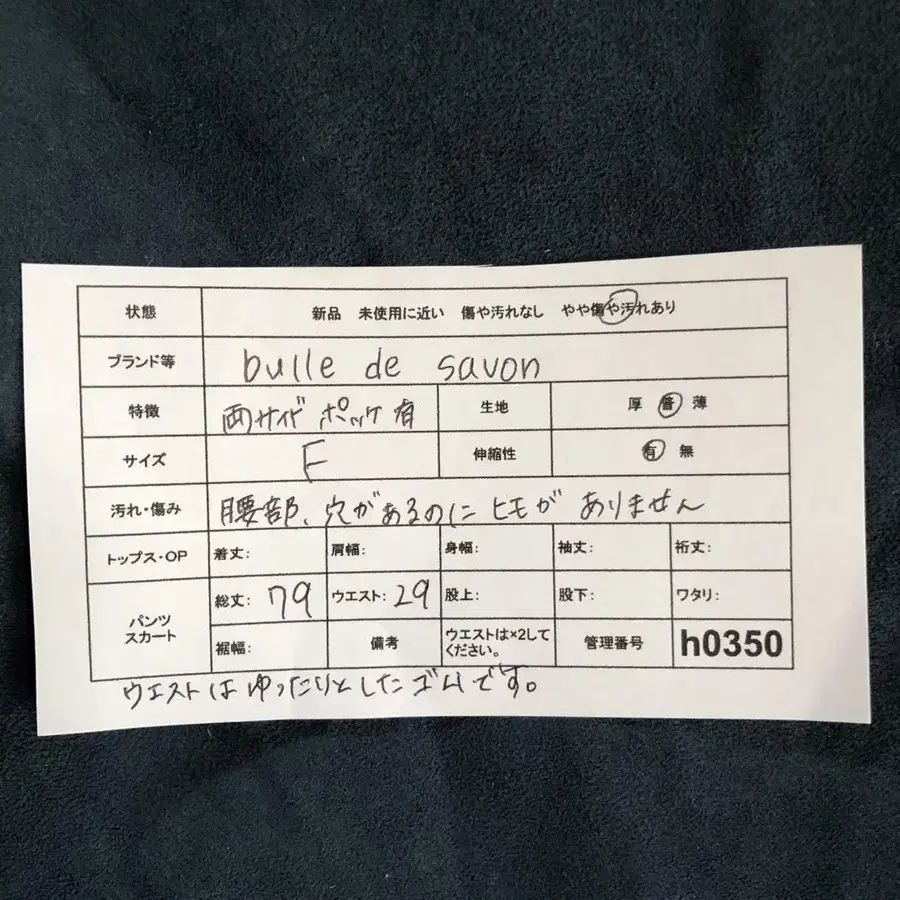 状態 新品 未使用に近い 傷や汚れなし やや傷や汚れあり
ブランド等 bulle de savon
特徴 両サイドポッケ有 生地 厚 普 薄
サイズ F 伸縮性 有 無
汚れ・傷み 腰部、穴があるのにヒモがありません
トップス・OP 着丈: 肩幅: 身幅: 袖丈: 裄丈:
パンツ スカート 総丈: 79 ウエスト: 29 股上: 股下: ワタリ:
裾幅: 備考 ウエストは×2してください。 管理番号 h0350
ウエストはゆったりとしたゴムです。